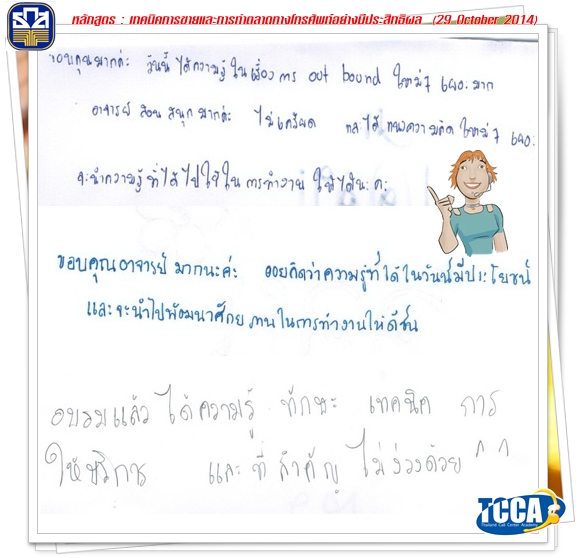 หลักสูตร : เทคนิคการขายและการทำตลาดทางโทรศัพท์อย่างมีประสิทธิผล (29 October 2014)
ขอบคุณมากค่ะ วันนี้ได้ความรู้ในเรื่องการ out bound ใหม่ๆ เยอะมาก
อาจารย์สอนสนุกมากค่ะ ไม่เครียด และได้แนวความคิดใหม่ๆ เยอะ
จะนำความรู้ที่ได้ไปใช้ในการทำงานให้ได้นะคะ
ขอบคุณอาจารย์มากนะค่ะ คิดว่าความรู้ที่ได้ในวันนี้มีประโยชน์
และจะนำไปพัฒนาศักยภาพในการทำงานให้ดีขึ้น
อบรมแล้ว ได้ความรู้ ทักษะ เทคนิค การ
ให้บริการ และที่สำคัญ ไม่ง่วงด้วย ^^
TCCA
Thailand Call Center Academy